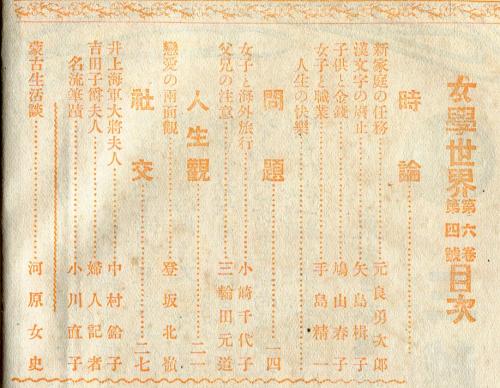 女學世界第六卷第四號目次
時論
新家庭の任務……元良勇次郎
漢文字の廢止……矢島楫子
子供と金錢……鳩山春子
女子と職業……手島精一
人生の快樂
問題……一四
女子と海外旅行……小崎千代子
父兄の注意……三輪田元道
人生觀……二一
戀愛の兩面觀……登坂北嶺
社交……二七
井上海軍大將夫人……中村鈴子
吉田子爵夫人……婦人記者
名流筆蹟……小川直子
蒙古生活談……河原女史